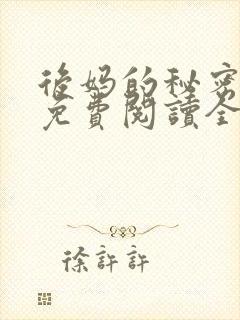 後媽的秘密
免費閱讀全
徐許許